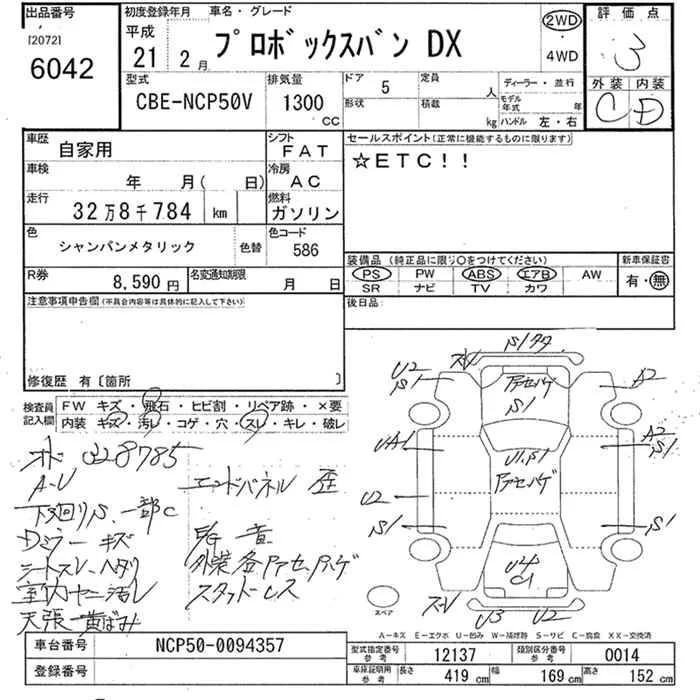 出品番号
[2072]
6042
初度登録年月
平成
21 2 月
車名・グレード
プロボックスバン DX
2WD
・
4WD
評価点
3
外装 内装
C D
型式
CBE-NCP50V
排気量
1300
CC
ドア 5
形状
定員 人
積載 kg
ディーラー・並行
モデル年式 年
ハンドル 左・右
車歴
自家用
シフト
FAT
車検
年 月( 日)
冷房
AC
走行
32万8千784 km
燃料
ガソリン
色
シャンパンメタリック
色替
色コード
586
R券
8,590 円
名変通知期限
月 日
セールスポイント(正常に機能するものに限ります)
☆ETC!!
装備品 (純正品に限り○をつけてください)
PS PW ABS エアB AW
SR ナビ TV カワ
新車保証書
有・無
後日品:
注意事項申告欄(不具合内容等は具体的に記入して下さい)
修復歴 有〔箇所 〕
検査員記入欄
FW キズ・飛石・ヒビ割・リペア跡・×要
内装 キズ・汚レ・コゲ・穴・スレ・キレ・破レ
A-U
エンドパネル 歪
下廻りS、一部C
Dミラーキズ
シートスレ、ヘタリ
室内ヤニ汚レ
天張 黄ばみ
スタットレス
U2
S1
A2
UA1
A2
S1
U2
S1
S1
S1
U1.S1
U4
C1
U3 U2
スペア
A-キズ E-エクボ U-凹み W-補修跡 S-サビ C-腐食 XX-交換済
車台番号
NCP50-0094357
登録番号
型式指定番号
参考
12137
類別区分番号
参考
0014
車庫証明用
参考
長さ
419 cm
幅
169 cm
高さ
152 cm